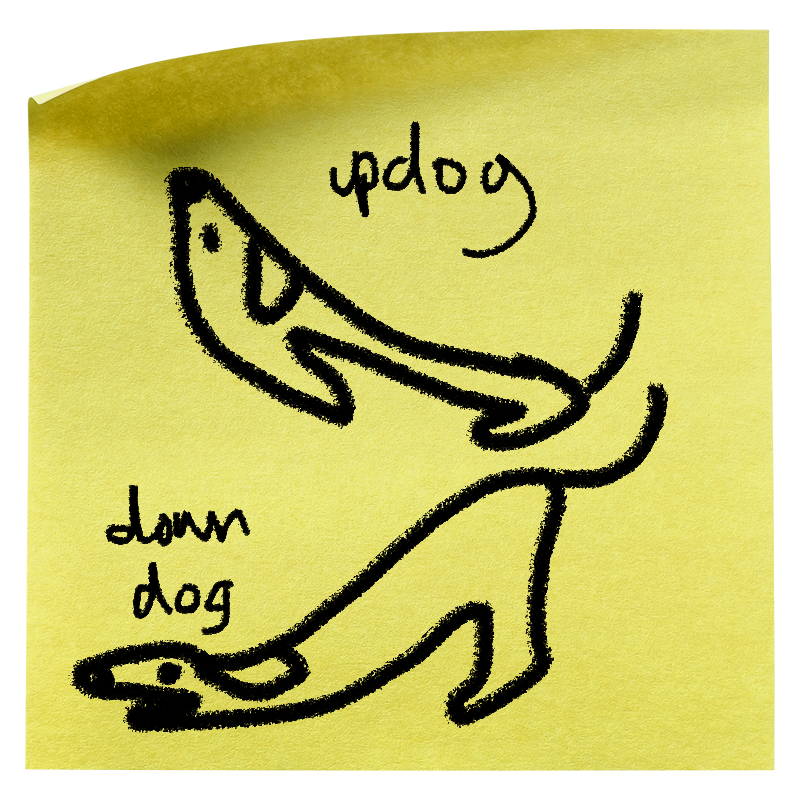 updog
down
dog